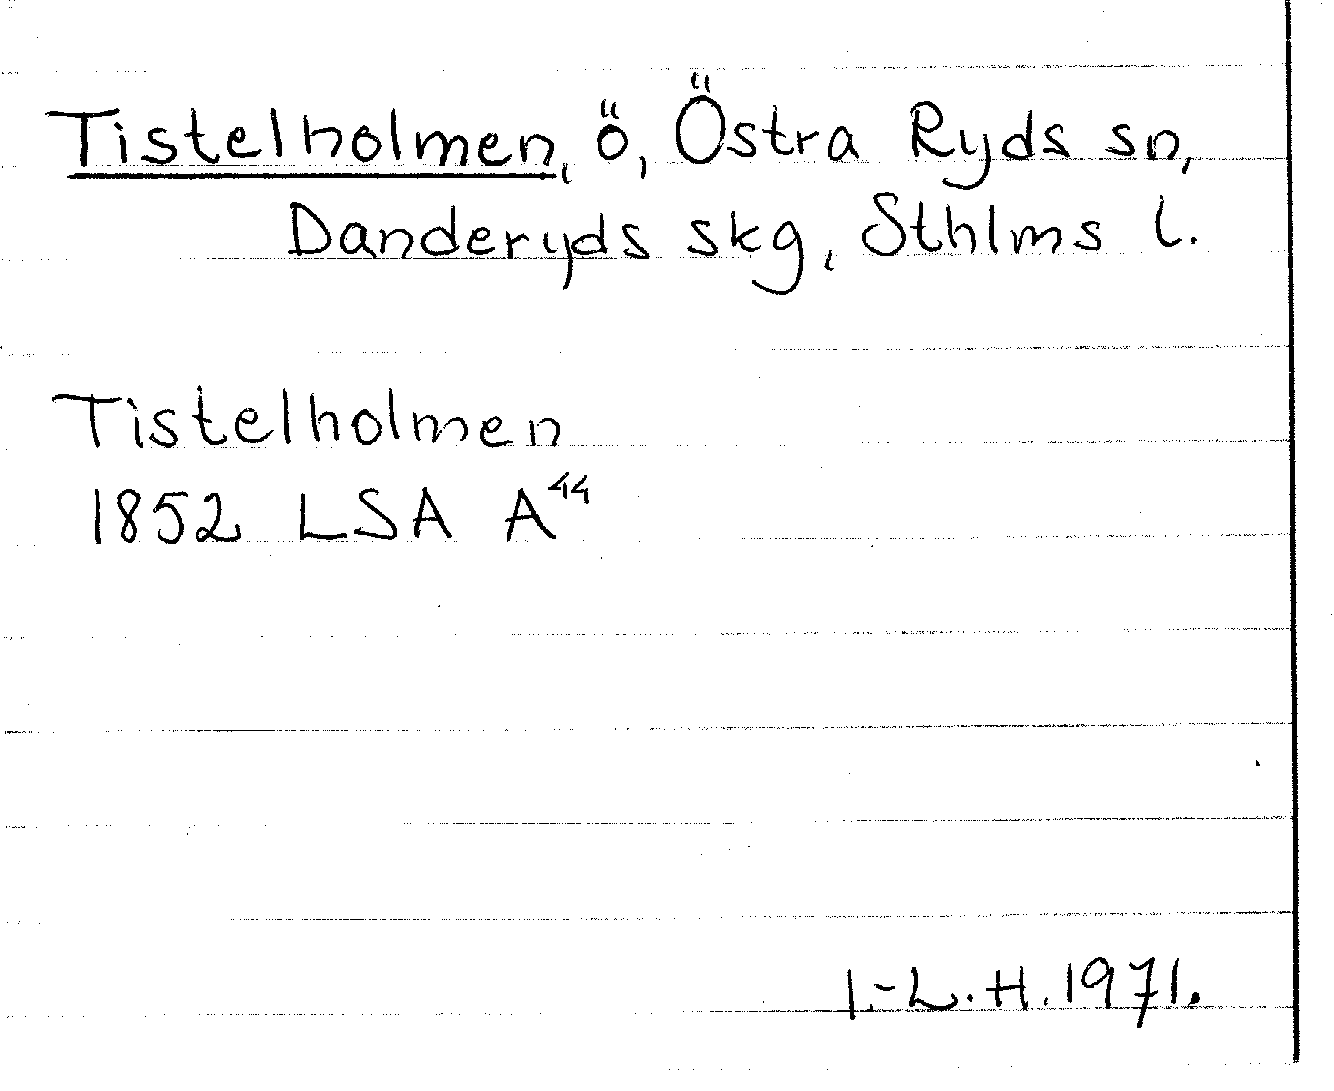 Tistelholmen, ö, Östra Ryds sn,
Danderyds skg, Sthlms l.
Tistelholmen
1852 LSA A44
I.-L.H. 1971.